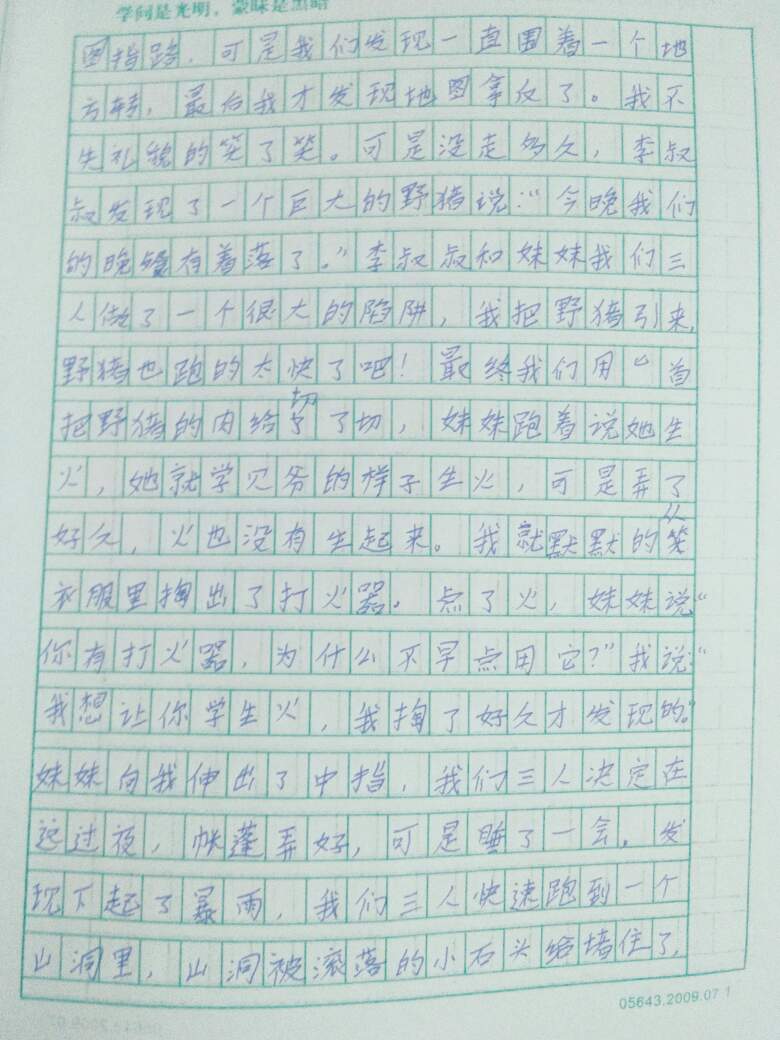 学问是光明，蒙昧是黑暗
图指路，可是我们发现一直围着一个地
方转，最后我才发现地图拿反了。我不
失礼貌的笑了笑。可是没走多久，李叔
叔发现了一个巨大的野猪说：“今晚我们
的晚餐有着落了。”李叔叔和妹妹我们三
人做了一个很大的陷阱，我把野猪引来，
野猪也跑的太快了吧！最终我们用匕首
把野猪的肉给切了了切，妹妹跑着说她生
火，她就学贝爷的样子生火，可是弄了
好久，火也没有生起来。我就默默的从
衣服里掏出了打火器。点了火，妹妹说“
你有打火器，为什么不早点用它？”我说：“
我想让你学生火，我掏了好久才发现的。”
妹妹向我伸出了中指，我们三人决定在
这过夜，帐蓬弄好，可是睡了一会。发
现下起了暴雨，我们三人快速跑到一个
山洞里，山洞被滚落的小石头给堵住了，
05643.2009.07 1